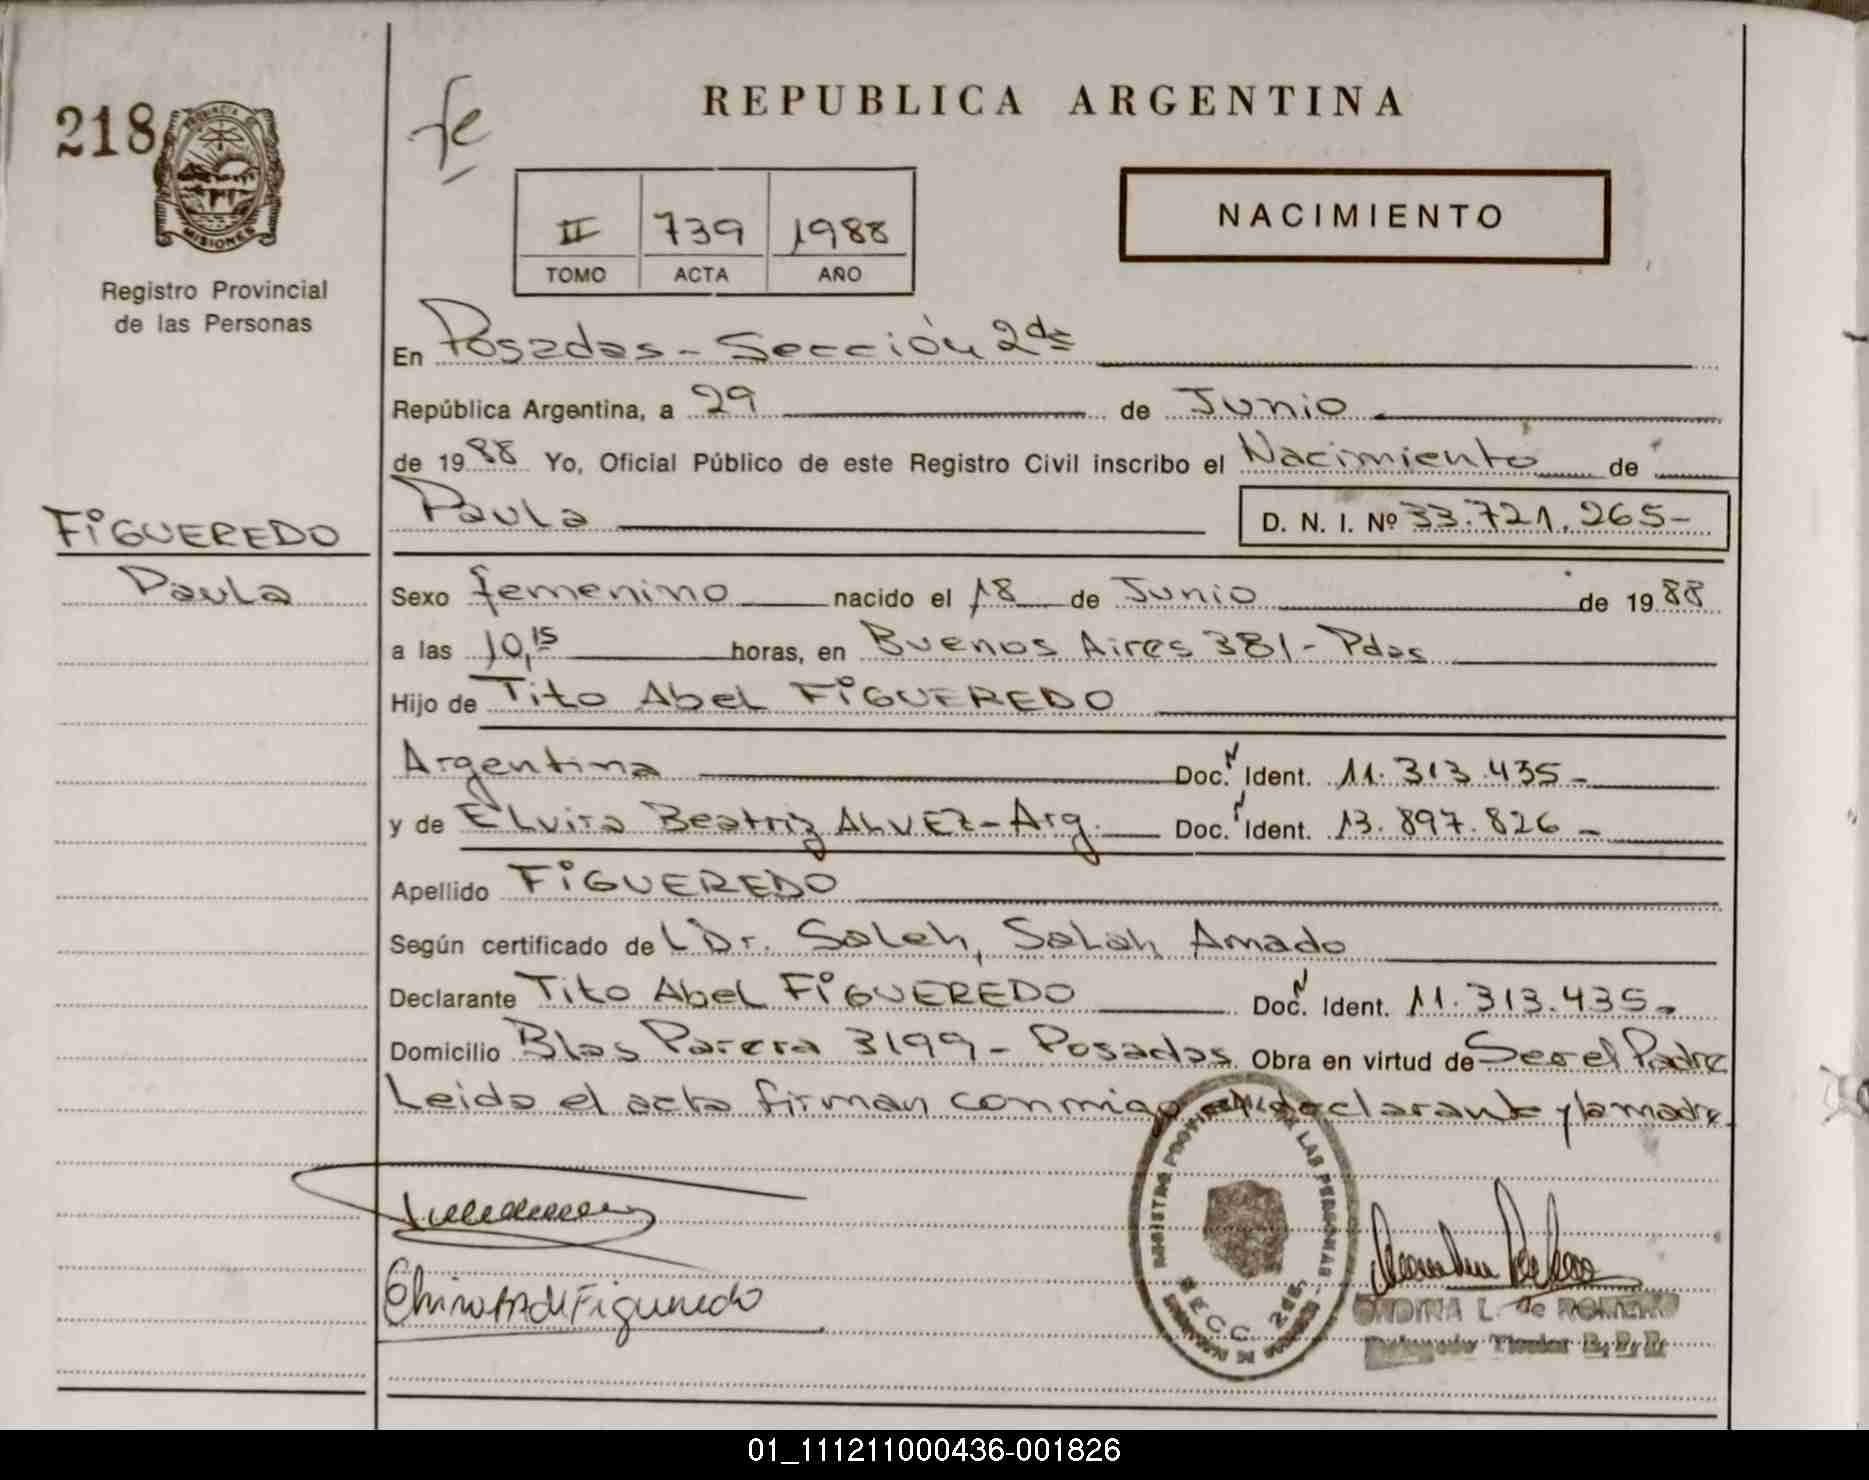 218
MISIONES
Registro Provincial
de las Personas
fe
REPUBLICA ARGENTINA
II 739 1988
TOMO ACTA AÑO
NACIMIENTO
En Posadas - Sección 2da
República Argentina, a 29 de Junio
de 1988 Yo, Oficial Público de este Registro Civil inscribo el Nacimiento de
Paula D. N. I. Nº 33.721.265-
FIGUEREDO
Paula
Sexo femenino nacido el 18 de Junio de 1988
a las 10,15 horas, en Buenos Aires 381 - Pdas
Hijo de Tito Abel FIGUEREDO
Argentina Doc. Ident. 11.313.435-
y de Elvira Beatriz ALVEZ - Arg. Doc. Ident. 13.897.826-
Apellido FIGUEREDO
Según certificado de Dr. Saleh, Salah Amado
Declarante Tito Abel FIGUEREDO Doc. Ident. 11.313.435-
Domicilio Blas Parera 3199 - Posadas Obra en virtud de Ser el Padre
Leido el acta firman conmigo el declarante y la madre
REGISTRO PROVINCIAL DE LAS PERSONAS
SECC. 2da.
de Figueredo
ONDINA L. de ROMERO
Delegado Titular R.P.P.
01_111211000436-001826